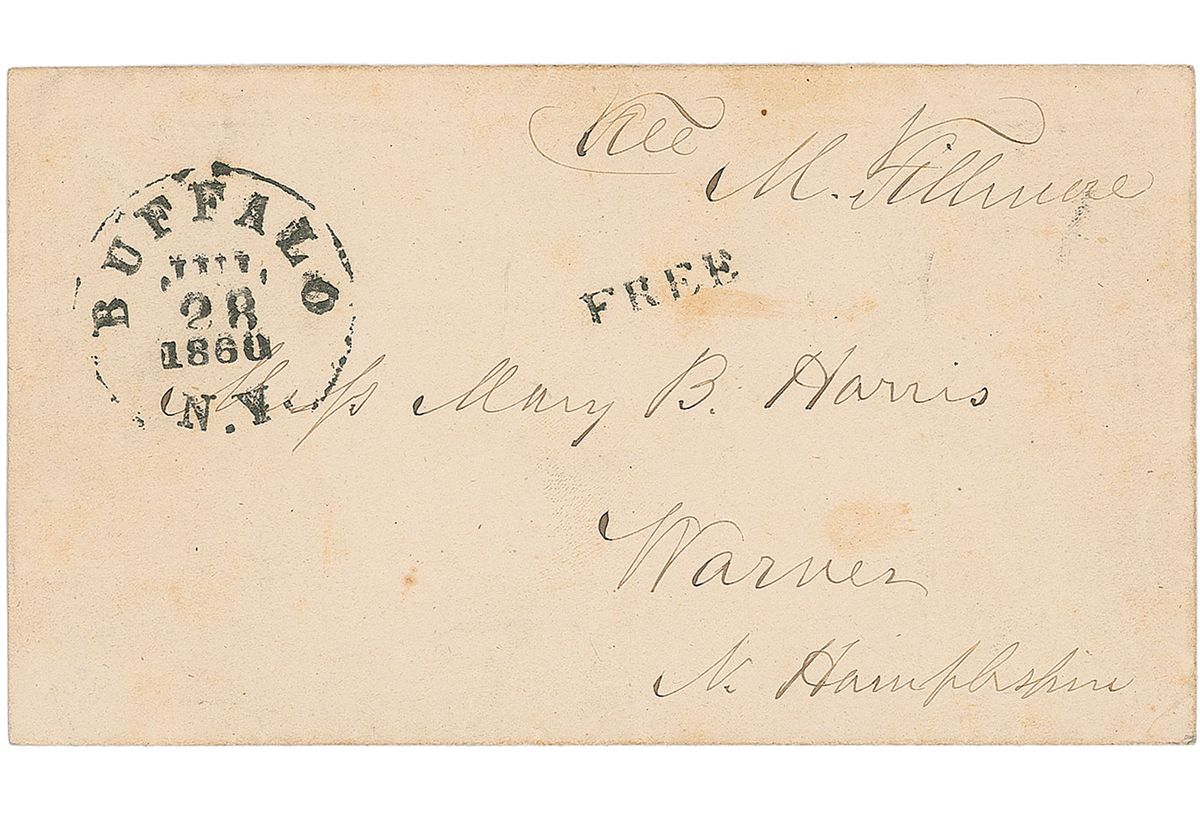 Free
M. Fillmore
BUFFALO
JUL
28
1860
N.Y.
FREE
Miss Mary B. Harris
Warner
N. Hampshire